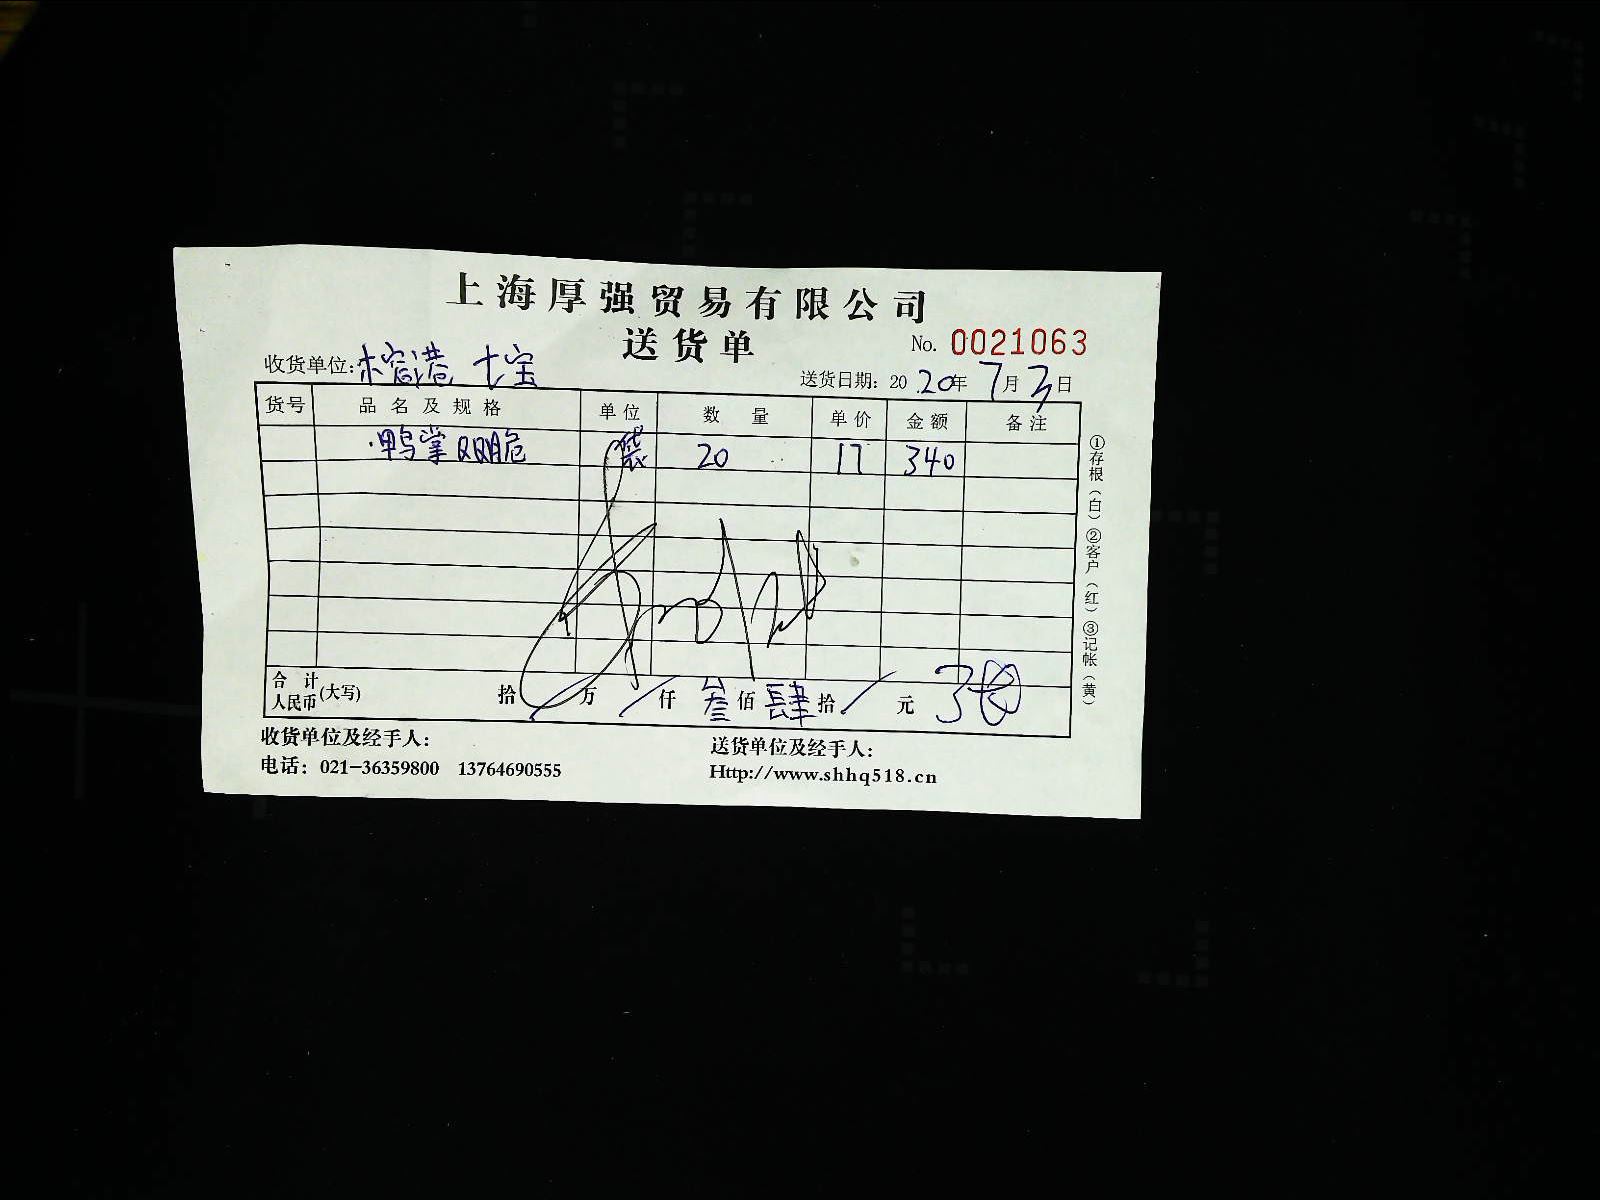 上海厚强贸易有限公司
送货单
No. 0021063
收货单位:榕港 七宝
送货日期: 2020年7月3日
货号 品名及规格 单位 数量 单价 金额 备注
鸭掌双脆 袋 20 17 340
合计人民币(大写) 拾 / 万 / 仟 叁 佰 肆 拾 / 元
收货单位及经手人:
送货单位及经手人:
电话: 021-36359800 13764690555
Http://www.shhq518.cn
①存根(白)②客户(红)③记帐(黄)